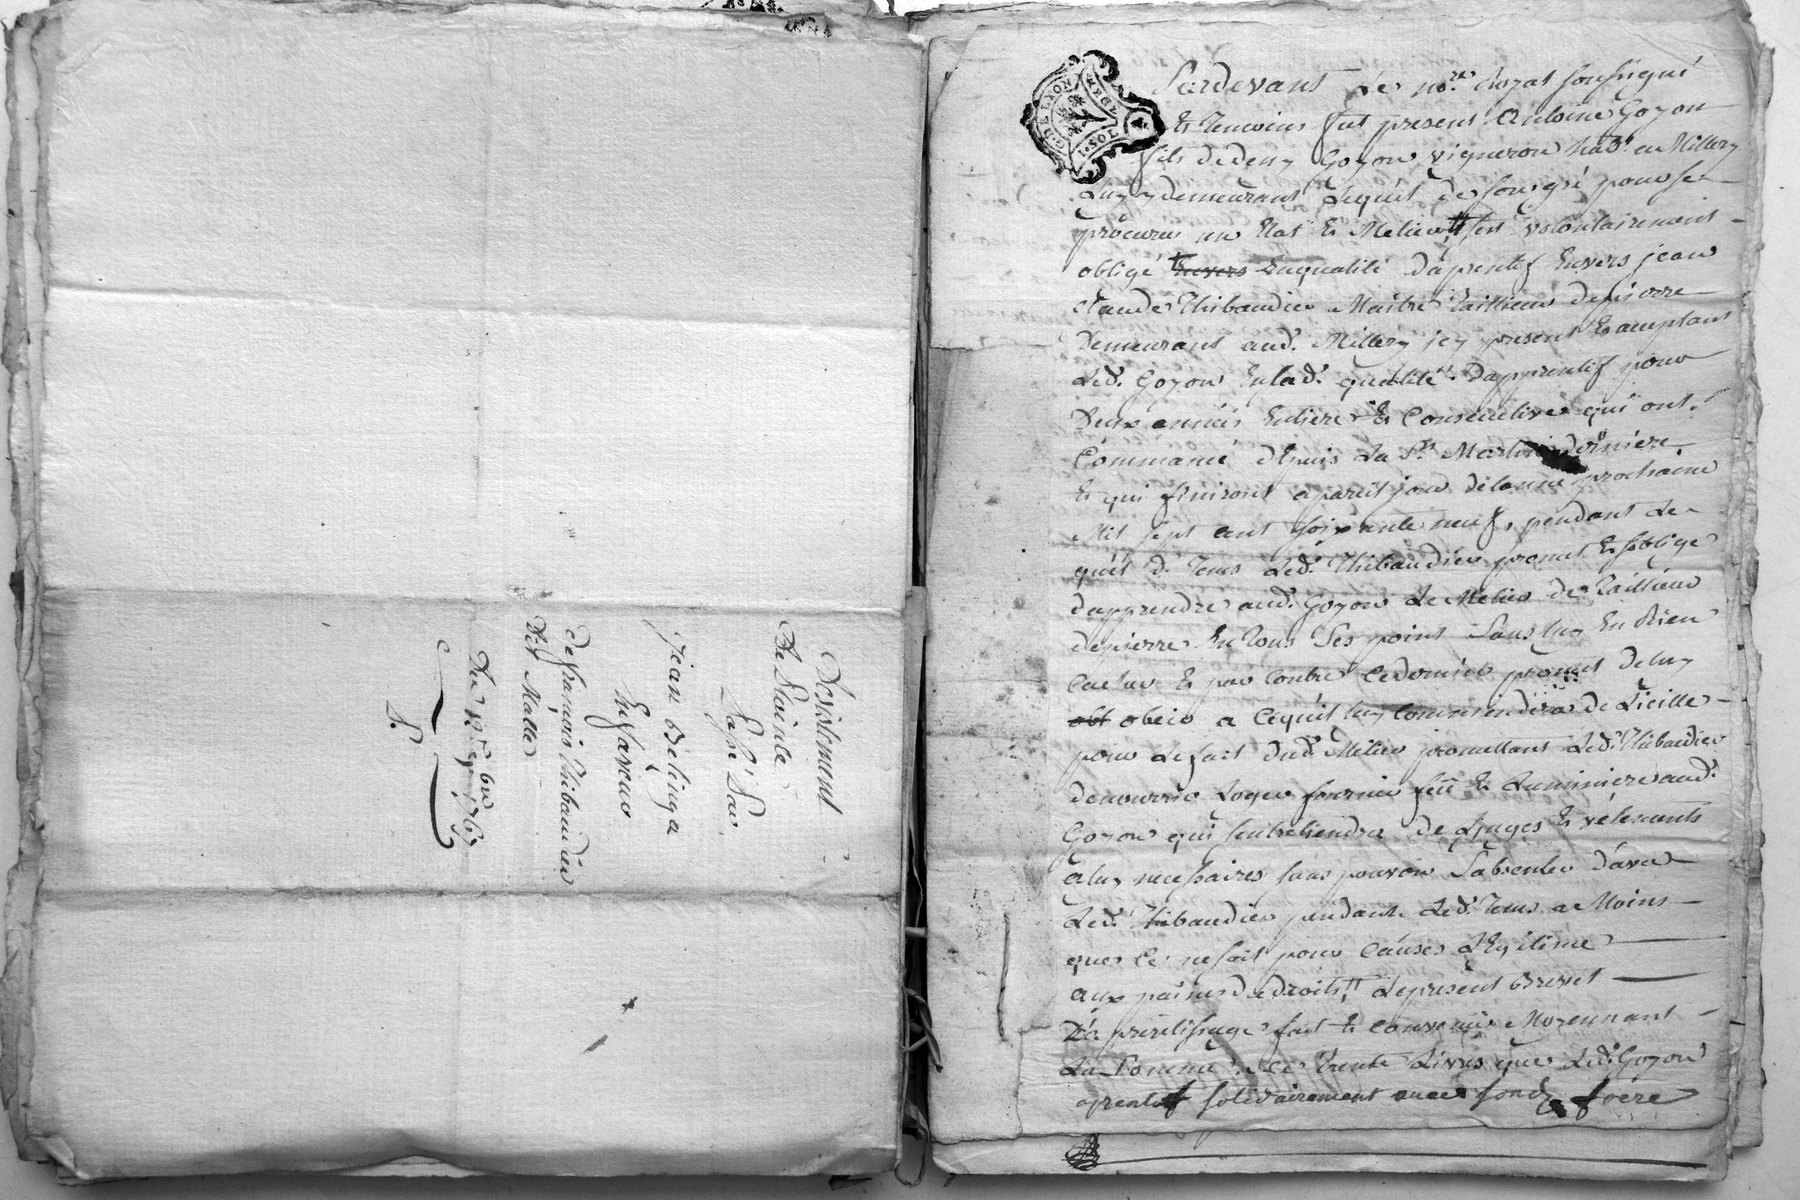 Desistement
De Plainte
Passé Par
jean Bélinga
En faveur
De françois Thibaudier
Dit Malle
Du 12e 7bre 1767
G. DE LYON
1. SOL
Pardevant Le nore. Royal soussigné
Et Temoins fut present Antoine Goyon
fils de deny Goyon vigneron habt. en Millery
Luy y demeurant Lequel de son gré pour se
procurer un Etat Et Metier, s'est volontairement
obligé Envers En qualité D'aprentif Envers jean
Claude Thibaudier Maitre Tailleur de pierre
Demeurant aud. Millery jcy present Et acceptant
Led. Goyon En lad. qualité D'apprentif pour
Deux années Entiere Et Consecutives qui ont
Commancé dhuis La St. Martin derniere
Et qui finiront a pareil jour de lannée prochaine
Mil sept cent soixante neuf, pendant Le
quel d. Tems Led. Thibaudier promet Et s'oblige
d'apprendre aud. Goyon Le Metier de Tailleur
de pierre En Tous Ses points Sans luy En Rien
Cacher Et par Contre Ce dernier promet de luy
obt obeir a Ce qu'il luy Commendera de Licitte
pour Le fait dud. Metier promettant Led. Thibaudier
de nourrir Loger fournir feu Et Luminiere aud.
Goyon qui s'entretiendra de Linges Et vétements
a luy necessaires sans pouvoir S'absenter D'avec
Led. Thibaudier pendant Led. Tems a Moins
que Ce ne soit pour Causes Legitime
aux peines de droits, Le present Brevet
D'apprentissage fait Et Convenu Moyennant
La Somme De Trente Livres que Led. Goyon
aprentif solidairement avec son d. frere